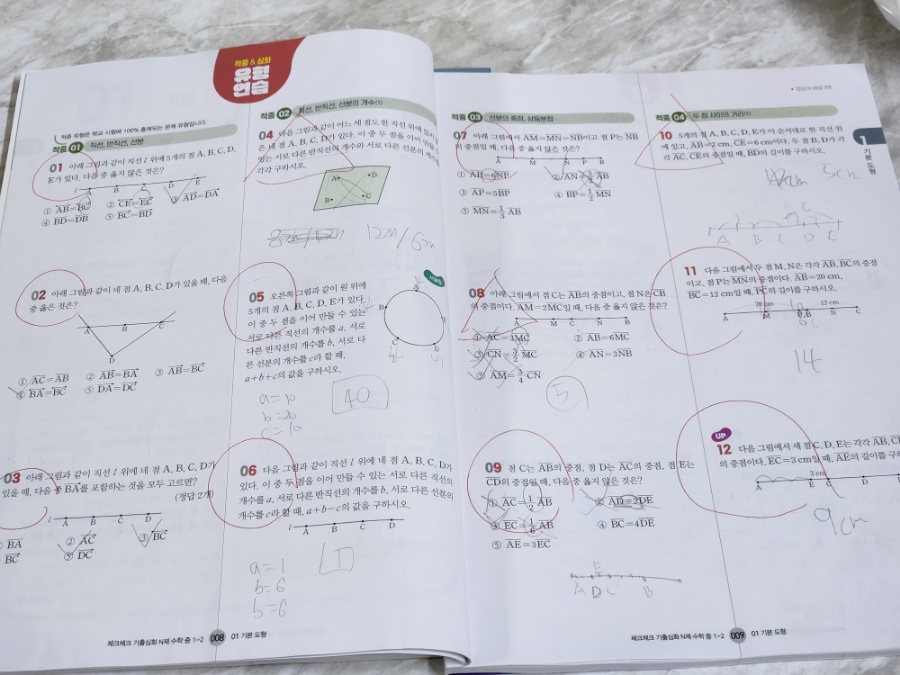 적중 & 심화
유형
연습
적중 유형은 학교 시험에 100% 출제되는 문제 유형입니다.
적중 01 직선, 반직선, 선분
01 아래 그림과 같이 직선 l 위에 5개의 점 A, B, C, D,
E가 있다. 다음 중 옳지 않은 것은?
l A B C D E
① AB=BC ② CE=EC ③ AD=DA
④ BD=DB ⑤ BC=BD
02 아래 그림과 같이 네 점 A, B, C, D가 있을 때, 다음
중 옳은 것은?
A B C
D
① AC=AB ② AB=BA ③ AB=BC
④ BA=BC ⑤ DA=DC
03 아래 그림과 같이 직선 l 위에 네 점 A, B, C, D가
있을 때, 다음 중 BA를 포함하는 것을 모두 고르면?
(정답 2개)
l A B C D
BA ② AC ③ BC
BC ⑤ DC
적중 02 직선, 반직선, 선분의 개수
04 다음 그림과 같이 어느 세 점도 한 직선 위에 있지
은 네 점 A, B, C, D가 있다. 이 중 두 점을 이어 만들
있는 서로 다른 반직선의 개수와 서로 다른 선분의 개수
각각 구하시오.
A D
B C
12개/6개
05 오른쪽 그림과 같이 원 위에
5개의 점 A, B, C, D, E가 있다.
이 중 두 점을 이어 만들 수 있는
서로 다른 직선의 개수를 a, 서로
다른 반직선의 개수를 b, 서로 다
른 선분의 개수를 c라 할 때,
a+b+c의 값을 구하시오.
a=10
b=20
c=10
40
06 다음 그림과 같이 직선 l 위에 네 점 A, B, C, D가
있다. 이 중 두 점을 이어 만들 수 있는 서로 다른 직선의
개수를 a, 서로 다른 반직선의 개수를 b, 서로 다른 선분의
개수를 c라 할 때, a+b-c의 값을 구하시오.
l A B C D
a=1
b=6
b=6
1
체크체크 기출심화 N제 수학 중 1-2 008 01 기본 도형
적중 03 선분의 중점, 삼등분점
07 아래 그림에서 AM=MN=NB이고 점 P는 NB
의 중점일 때, 다음 중 옳지 않은 것은?
A M N P B
③ AP=5BP ④ BP=1/2 MN
⑤ MN=1/3 AB
08 아래 그림에서 점 C는 AB의 중점이고, 점 N은 CB
의 중점이다. AM=2MC일 때, 다음 중 옳지 않은 것은?
A M C N B
① AC=3MC ② AB=6MC
③ CN=3/2 MC ④ AN=3NB
⑤ AM=3/4 CN
5
09 점 C는 AB의 중점, 점 D는 AC의 중점, 점 E는
CD의 중점일 때, 다음 중 옳지 않은 것은?
① AC=1/2 AB ② AD=2DE
③ EC=1/6 AB ④ BC=4DE
⑤ AE=3EC
E
A D C B
적중 04 두 점 사이의 거리
10 5개의 점 A, B, C, D, E가 이 순서대로 한 직선 위
에 있고, AB=2 cm, CE=6 cm이다. 두 점 B, D가
각각 AC, CE의 중점일 때, BD의 길이를 구하시오.
5cm
A B C D E
11 다음 그림에서 두 점 M, N은 각각 AB, BC의 중점
이고, 점 P는 MN의 중점이다. AB=20 cm,
BC=12 cm일 때, PC의 길이를 구하시오.
20 cm 12 cm
A M B N C
14
UP
12 다음 그림에서 세 점 C, D, E는 각각 AB, CB,
의 중점이다. EC=3 cm일 때, AE의 길이를 구하
3 cm
A E C D
9cm
1
기본 도형
체크체크 기출심화 N제 수학 중 1-2 009 01 기본 도형